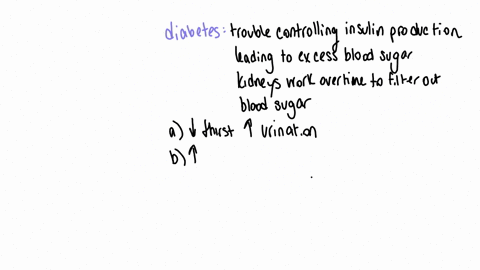 diabetes: trouble controlling insulin production
leading to excess blood sugar
kidneys work overtime to filter out
blood sugar
a) ↓ thirst ↑ urination
b) ↑